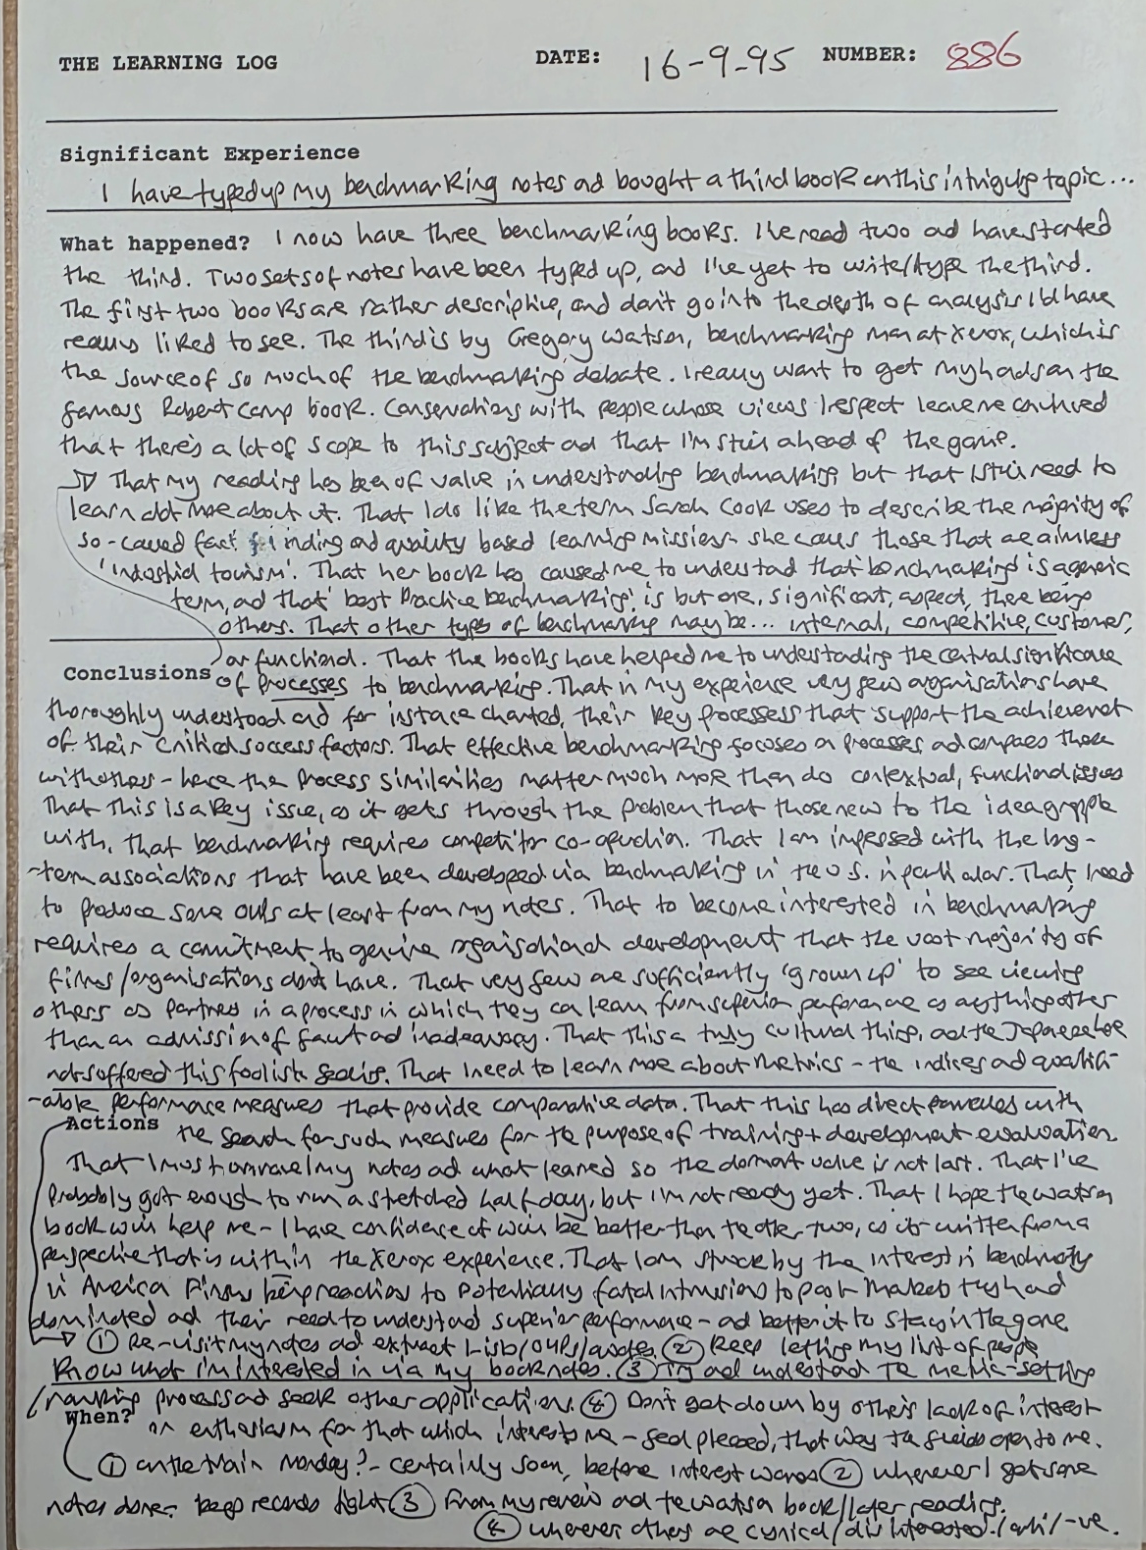 THE LEARNING LOG DATE: 16-9-95 NUMBER: 886
Significant Experience
I have typed up my benchmarking notes and bought a third book on this intriguing topic...
What happened? I now have three benchmarking books. I've read two and have started
the third. Two sets of notes have been typed up, and I've yet to write/type the third.
The first two books are rather descriptive, and don't go into the depth of analysis I'd have
really liked to see. The third is by Gregory Watson, benchmarking man at Xerox, which is
the source of so much of the benchmarking debate. I really want to get my hands on the
famous Robert Camp book. Conservations with people whose views I respect leave me convinced
that there's a lot of scope to this subject and that I'm still ahead of the game.
That my reading has been of value in understanding benchmarking but that I still need to
learn alot more about it. That I do like the term Sarah Cook uses to describe the majority of
so-called fact finding and quality based learning missions she calls those that are aimless
'industrial tourism'. That her book has caused me to understand that benchmarking is a generic
term, and that 'best practice benchmarking' is but one, significant, aspect, there being
others. That other types of benchmarking may be... internal, competitive, customer,
or functional. That the books have helped me to understanding the central significance
Conclusions of processes to benchmarking. That in my experience very few organisations have
thoroughly understood and for instance charted, their key processess that support the achievement
of their critical success factors. That effective benchmarking focuses on processes and compares these
with others - hence the process similarities matter much more than do contextual, functional issues
That this is a key issue, as it gets through the problem that those new to the idea grapple
with, that benchmarking requires competitor co-operation. That I am impressed with the long-
-term associations that have been developed via benchmarking in the U.S. in particular. That I need
to produce some OHLs at least from my notes. That to become interested in benchmarking
requires a commitment to genuine organisational development that the vast majority of
firms/organisations don't have. That very few are sufficiently 'grown up' to see viewing
others as partners in a process in which they can learn from superior performance as anything other
than an admission of fault and inadequacy. That this a truly cultural thing, and the Japanese have
not suffered this foolish feeling. That I need to learn more about metrics - the indices and quantifi-
-able performance measures that provide comparative data. That this has direct parallels with
Actions the search for such measures for the purpose of training + development evaluation.
That I must unravel my notes and what learned so the dormant value is not lost. That I've
probably got enough to run a stretched half day, but I'm not ready yet. That I hope the Watson
book will help me - I have confidence it will be better than the other two, as it's written from a
perspective that is within the Xerox experience. That I am struck by the interest in benchmarking
in America Firms being reaction to potentially fatal intrusions to past markets they had
dominated and their need to understand superior performance - and better it to stay in the game
① Re-visit my notes and extract lists/OHPs/quotes. ② Keep letting my list of people
know what I'm interested in via my booknotes. ③ Try and understand the metric-setting
/ranking process and seek other applications. ④ Don't get down by other's lack of interest
When? or enthusiasm for that which interests me - feel pleased, that way the field's open to me.
① on the train Monday? - certainly soon, before interest wanes ② wherever I get some
notes done - keep records tight ③ From my review and the Watson book/later reading.
④ wherever others are cynical/disinterested/anti/-ve.